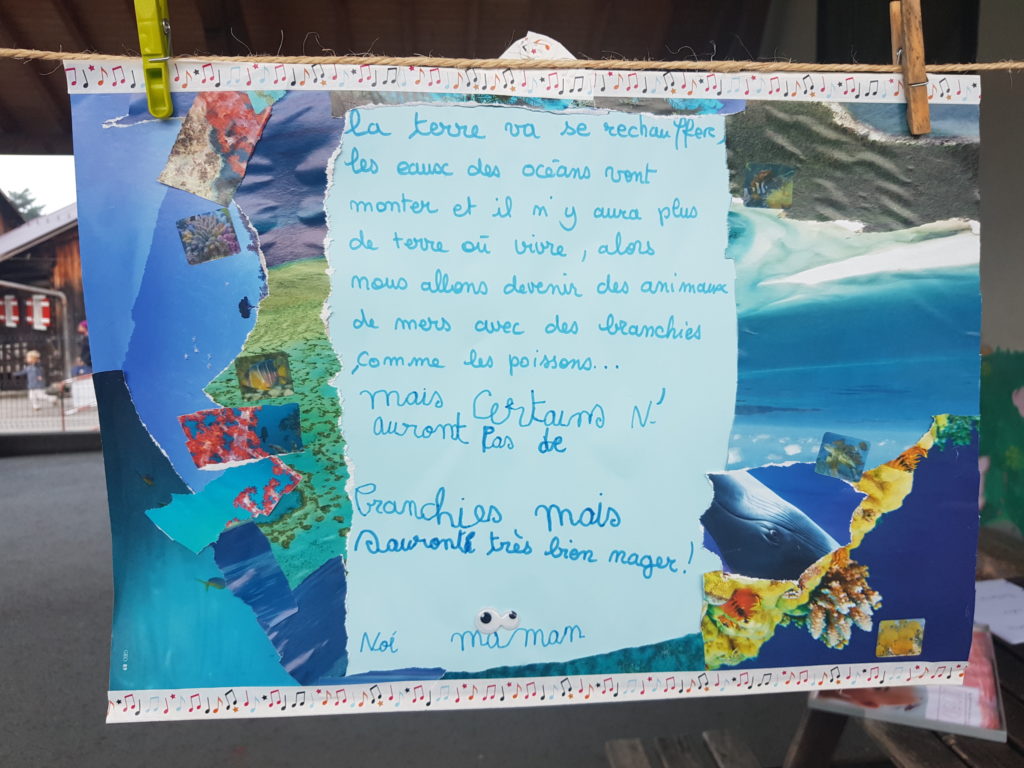 la terre va se rechauffer,
les eaux des océans vont
monter et il n'y aura plus
de terre où vivre, alors
nous allons devenir des animaux
de mers avec des branchies
comme les poissons...
mais certains n'
auront Pas de
branchies mais
sauront très bien nager!
Noé maman